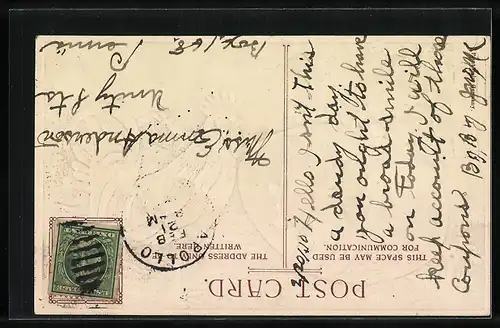 POST CARD.
THIS SPACE MAY BE USED
FOR COMMUNICATION.
THE ADDRESS ONLY TO BE
WRITTEN HERE.
Hello, isn't this
a dandy day
you ought to have
a broad smile
on today. I will
keep account of those
coupons. By By
APOLLO
FEB
21
M
Miss Emma Anderson
Unity Sta
Box 168. Penna